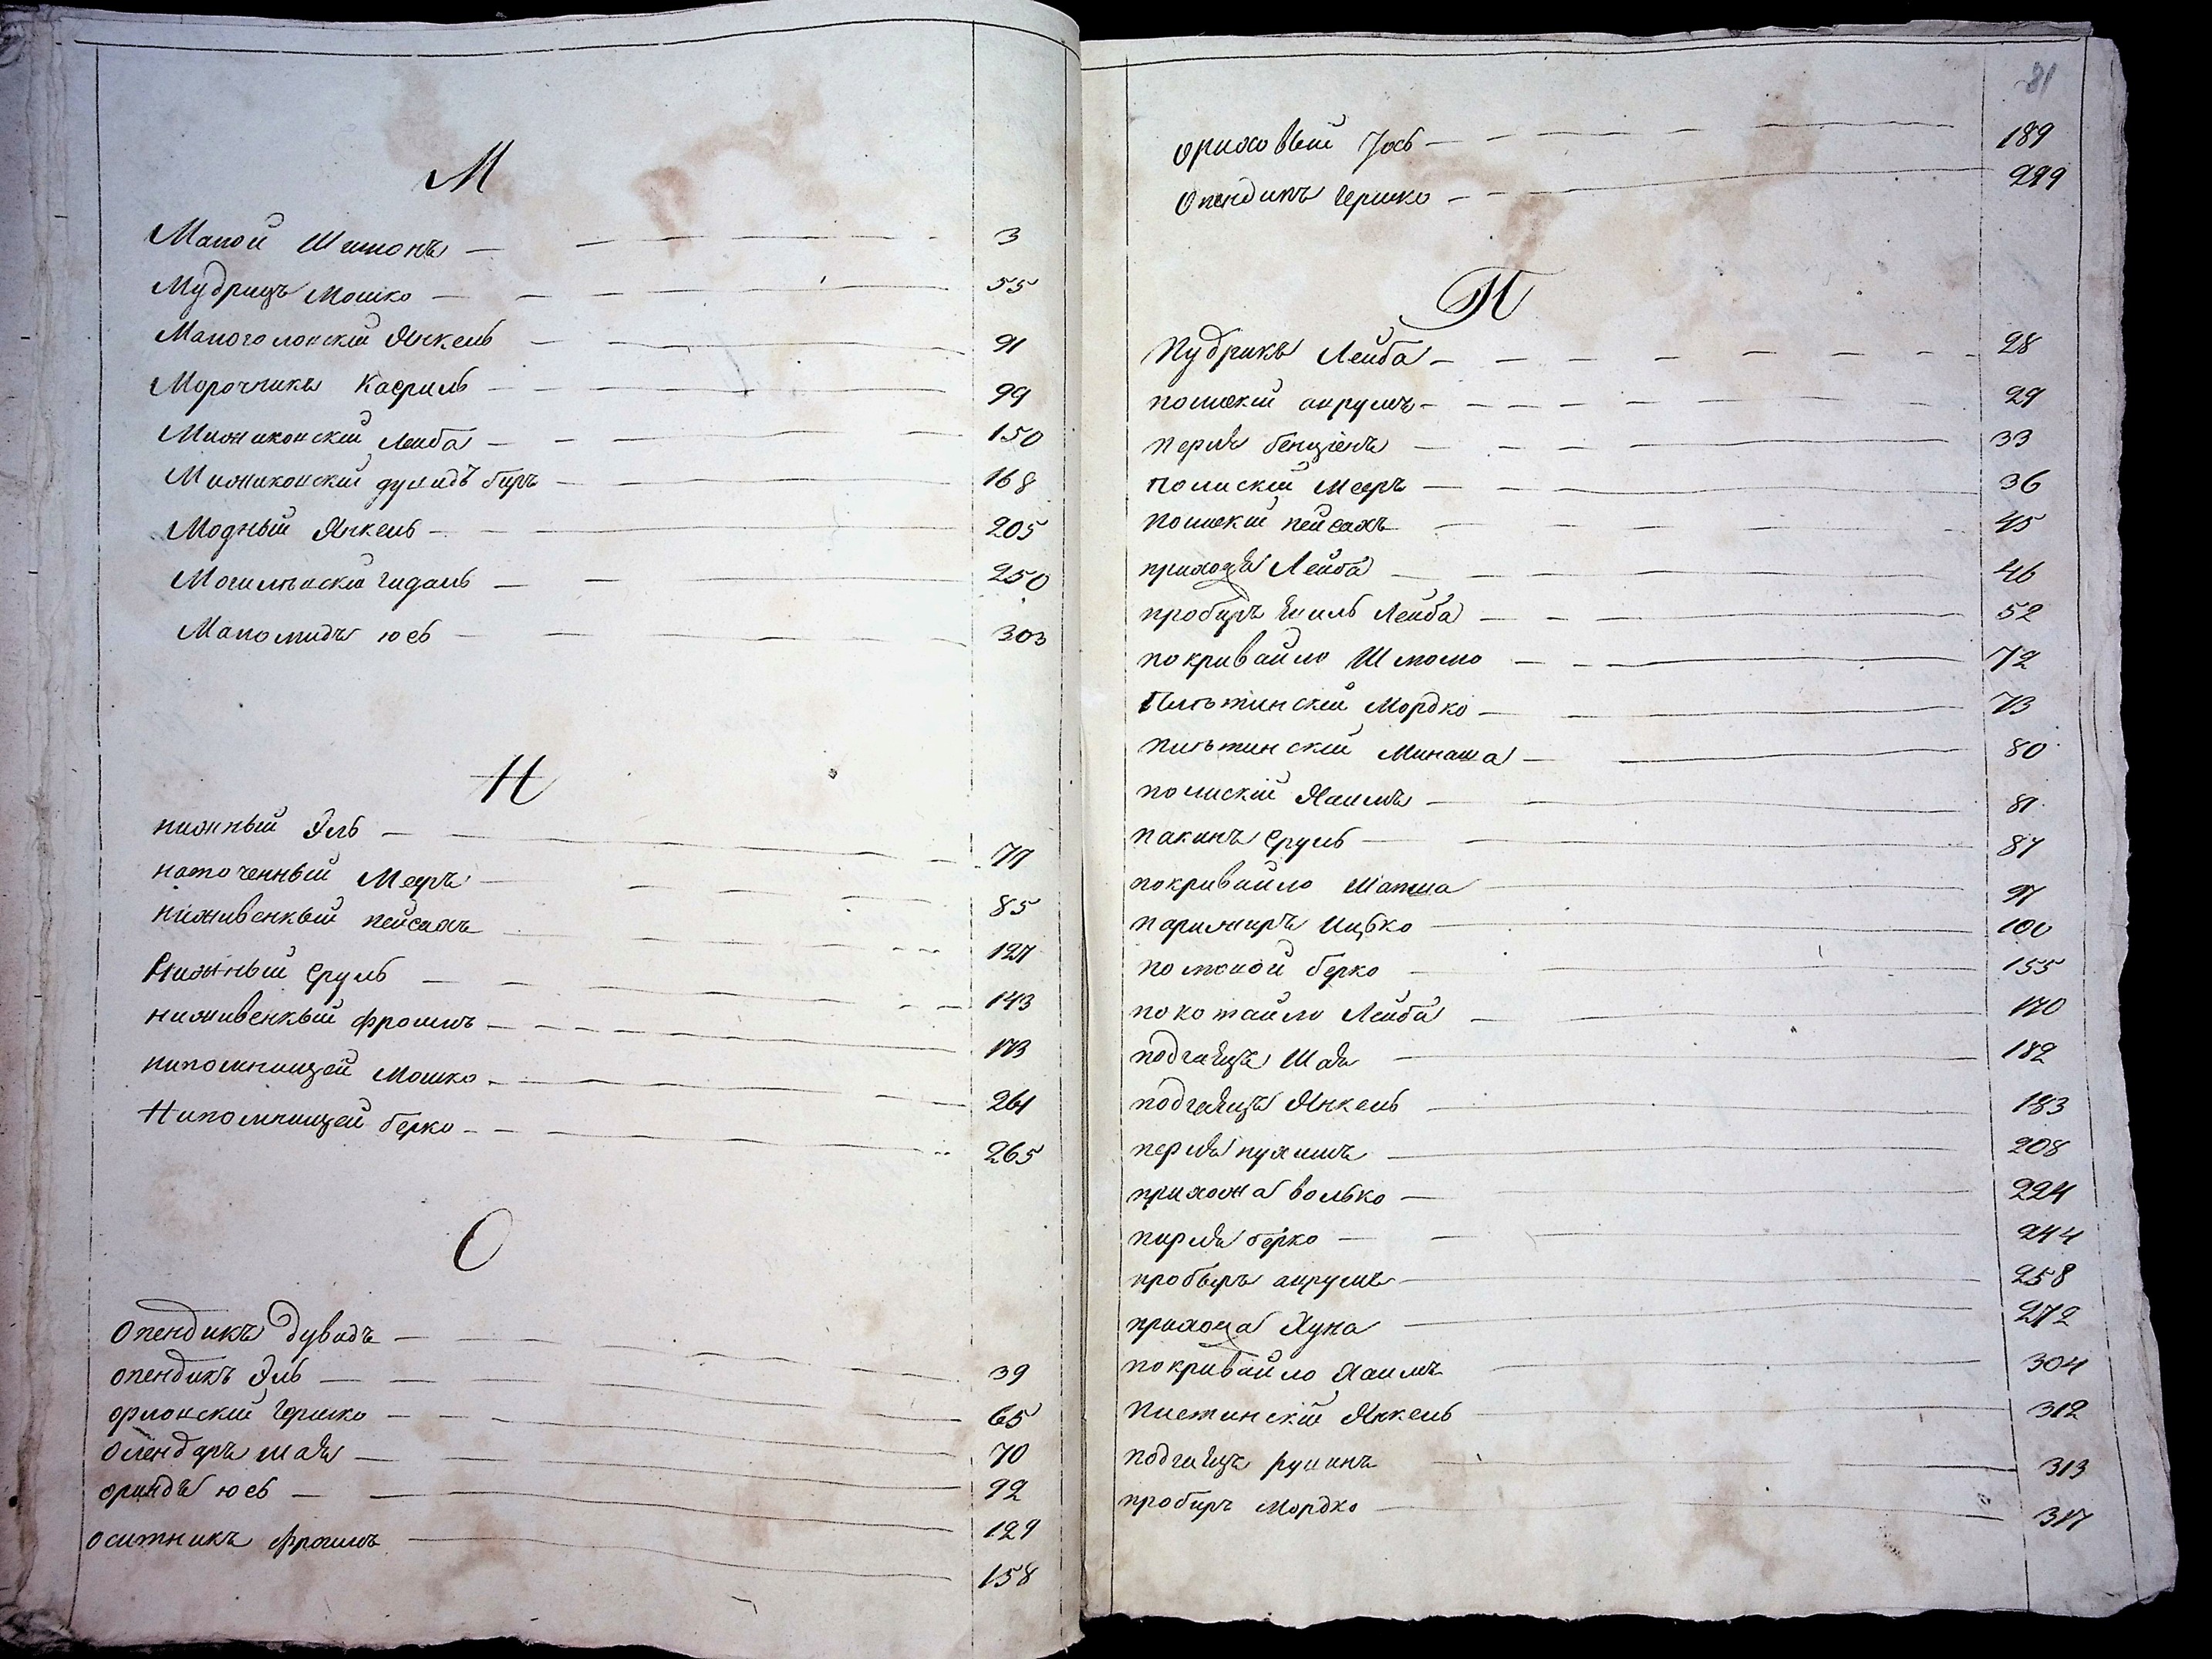 М
Малой Шимонъ 3
Мудрицъ Мошко 55
Малоголовскій Янкель 91
Морочникъ Касриль 99
Мижиковскій Лейба 150
Мижиковскій дувидъ беръ 168
Модный Янкель 205
Могилевскій гидаль 250
Маломидъ юсь 303
Н
нижный Эль 77
наточенный Мееръ 85
ниживенкый пейсахъ 127
Нижный Сруль 143
ниживенкый фроимъ 173
нипомнищей Мошко 261
Нипомнищей берко 265
О
Опендикъ Дувидъ 39
опендикъ Эль 65
орловскій Гершко 70
Олендаръ шая 92
ориндъ юсь 129
оситникъ фроимъ 158
81
ориховый Іось 189
Опендикъ Гершко 299
П
Пудрикъ Лейба 28
полискій аврумъ 29
перля бенціенъ 33
полискій Мееръ 36
полискій пейсахъ 45
прихожа Лейба 46
проберъ Хиль Лейба 52
покривайло Шлиомо 72
Пильтинскій Мордко 73
пильтинскій Минаша 80
полискій Хаимъ 81
пакинъ Сруль 87
покривайло Мапша 97
парижиръ Ицько 100
полювой берко 155
покотайло Лейба 170
подгаецъ Шая 182
подгаецъ Янкель 183
перля нухимъ 208
прихожа волько 224
пирля берко 244
проберъ аврумъ 258
прихожа Хуна 272
покривайло Хаимъ 304
Пистинскій Янкель 312
подгаецъ рувинъ 313
проберъ Мордко 317